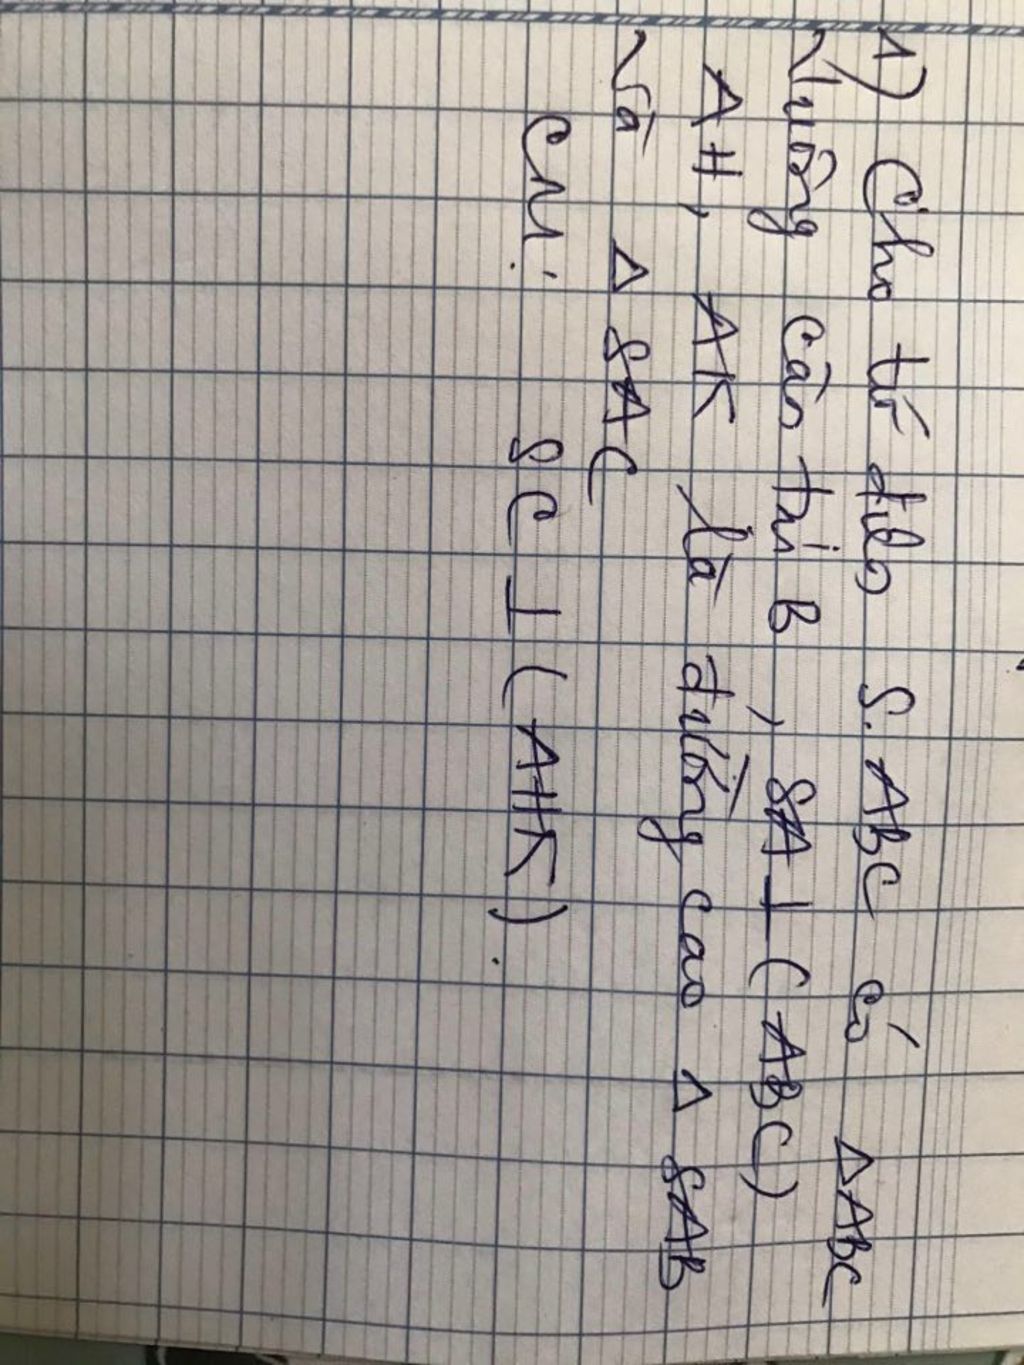 1) Cho tứ diện S.ABC có ΔABC
Vuông cân tại B, SA ⊥ (ABC)
AH, AK là đường cao Δ SAB
và Δ SAC
CM: SC ⊥ (AHK).